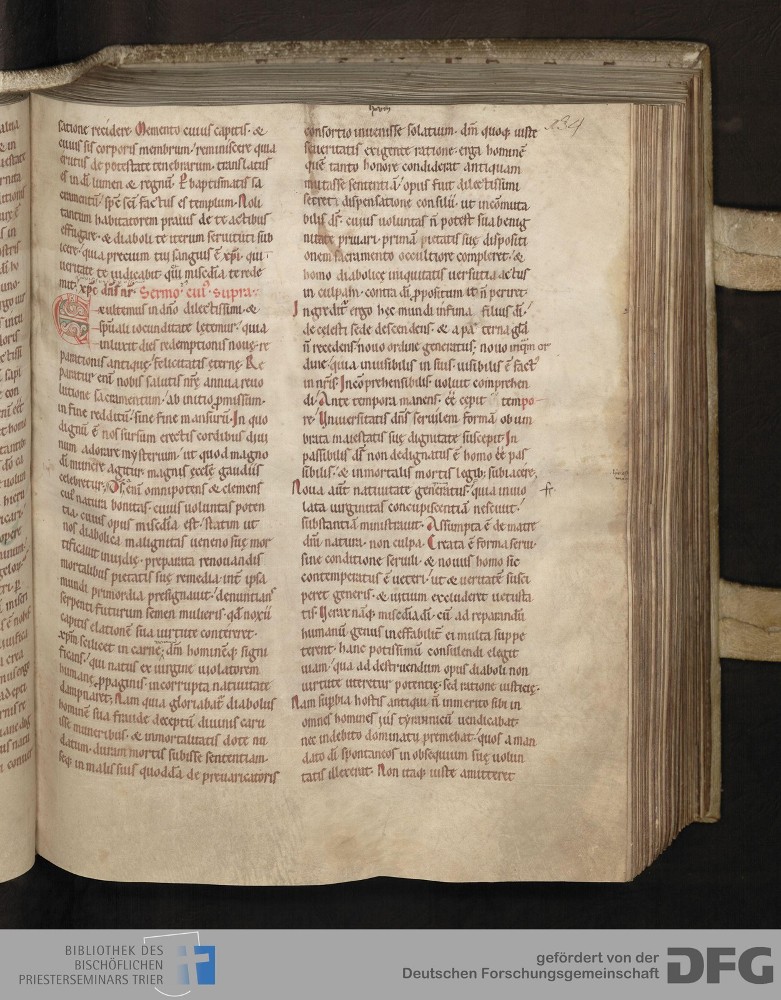 satione recidere. Memento cuius capitis. &
cuius sis corporis membrum. reminiscere quia
erutus de potestate tenebrarum. translatus
es in dī lumen & regnū. P baptismatis sa
cramentū. spc̄ scī factus es templum. Noli
tantum habitatorem prauis de te actibus
effugare. & diaboli te iterum seruituti sub
icere. quia precium tuū sanguis ē xp̄i. qui
ueritate te iudicabit qui misedia te rede
mit. xp̄c dn̄s nr̄. Sermo. eiusͩ. supra.
Exultemus in dn̄o dilectissimi. &
sp̄uali iocunditate letemur. quia
inluxit dies redemptionis noue. re
parationis antique. felicitatis eterne. Re
paratur enī nobis salutis nr̄e annua reuo
lutione sacramentum. ab initio p̱missum.
in fine redditū. sine fine mansurū. In quo
dignū ē nos sursum erectis cordibus diui
num adorare mysterium. ut quod magno
dī munere agitur. magnis eccłe gaudiis
celebretur. D̄s enī omnipotens & clemens
cuī natura bonitas. cuius uoluntas poten
tia. cuius opus misedia est. statim ut
nos diabolica malignitas ueneno sue mor
tificauit inuidie. preparata renouandis
mortalibus pietatis sue remedia. int̄ ipsa
mundi primordia presignauit. denuntians
serpenti futurum semen mulieris. qd̄ noxii
capitis elationē sua uirtute contereret.
xp̄m scilicet in carne. dm̄ hominēq; signi
ficans. qui natus ex uirgine uiolatorem
humane p̱paginis incorrupta natiuitate
dampnaret. Nam quia gloriabat̄ diabolus
hominē sua fraude deceptū diuinis caru
isse muneribus. & inmortalitatis dote nu
datum. duram mortis subisse sententiam.
seq; in malis suis quoddā de preuaricatoris
234
consortio inuenisse solatium. dm̄ quoq; iuste
seueritatis exigente ratione. erga hominē
quē tanto honore condiderat antiquam
mutasse sententiā. opus fuit dilectissimi
secreti dispensatione consilii. ut incōmuta
bilis ds̄. cuius uoluntas n̄ potest sua benig
nitate priuari. primā pietatis sue dispositi
onem sacramento occultiore compleret. &
homo diabolice iniquitatis uersutia actus
in culpā. contra dī p̱positum n̄ periret.
Ingreditur ergo hec mundi infima filius dī.
de celesti sede descendens. & a paterna glā
n̄ recedens. nouo ordine generatus. nouo inquam or
dine. quia inuisibilis in suis. uisibilis ē fact̄
in nr̄is. Incōprehensibilis uoluit comprehen
di. Ante tempora manens. eē cepit ex tempo
re. Uniuersitatis dn̄s seruilem formā. ob um
brata maiestatis sue dignitate suscepit. In
passibilis ds̄ non dedignatus ē homo eē pas
sibilis. & inmortalis mortis legib; subiacere.
Noua aūt natiuitate generatus. quia inuio
lata uirginitas concupiscentiā nesciuit.
substantiam ministrauit. Assumpta ē de matre
dn̄i natura. non culpa. Creata ē forma serui
sine conditione seruili. & nouus homo sic
contemperatus ē ueteri. ut & ueritatē susci
peret generis. & uitium excluderet uetusta
tis. Uerax nāq; misedia dī. cū ad reparandū
humanū genus ineffabilit̄ ei multa suppe
terent. hanc potissimū consulendi elegit
uiam. qua ad destruendum opus diaboli non
uirtute uteretur potentie. sed ratione iusticie.
Nam supbia hostis antiqui. n̄ inmerito sibi in
omnes homines ius tyrannicū uendicabat.
nec indebito dominatu premebat. quos a man
dato dī spontaneos in obsequium sue uolun
tatis illexerat. Non itaq; iuste amitteret
BIBLIOTHEK DES
BISCHÖFLICHEN
PRIESTERSEMINARS TRIER
gefördert von der
Deutschen Forschungsgemeinschaft
DFG